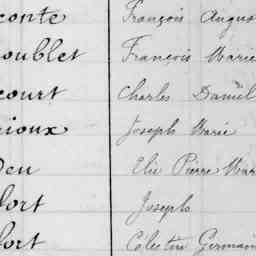 conte François Augus
oublet François Marie
court Charles Daniel
rioux Joseph Marie
Den Elie Pierre Mar
fort Joseph
fort Célestin Germain